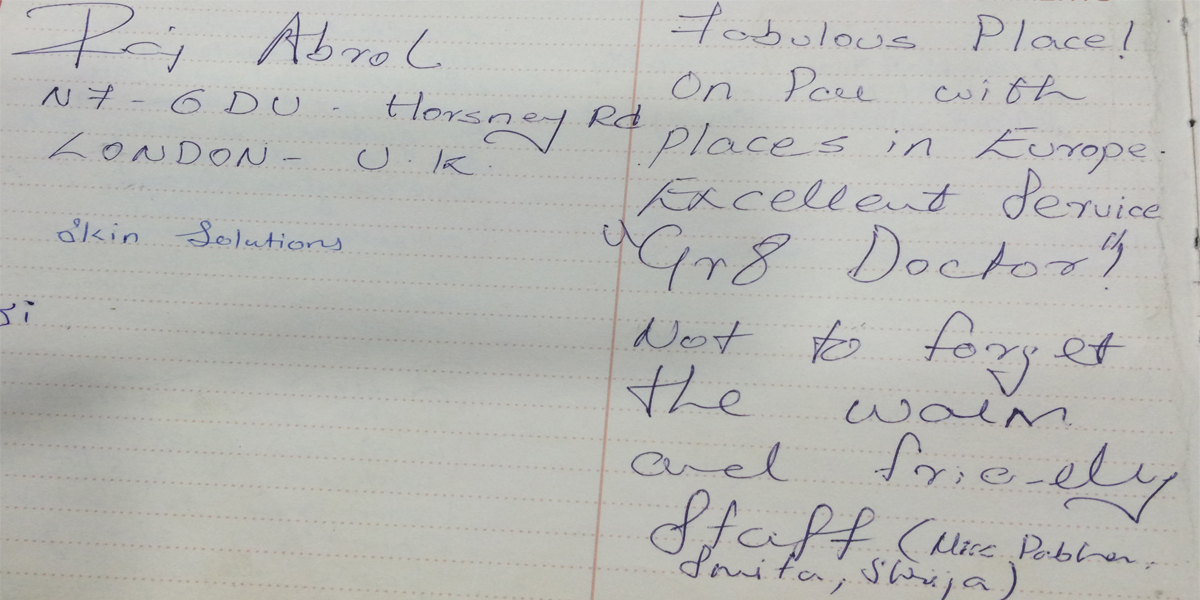 Raj Abrol
N7-6DU. Horsney Rd
LONDON- U.K.
Skin Solutions
Fabulous Place!
On Par with
places in Europe.
Excellent Service
"Gr8 Doctor"!
Not to forget
the warm
and friendly
Staff (Miss
Smita,